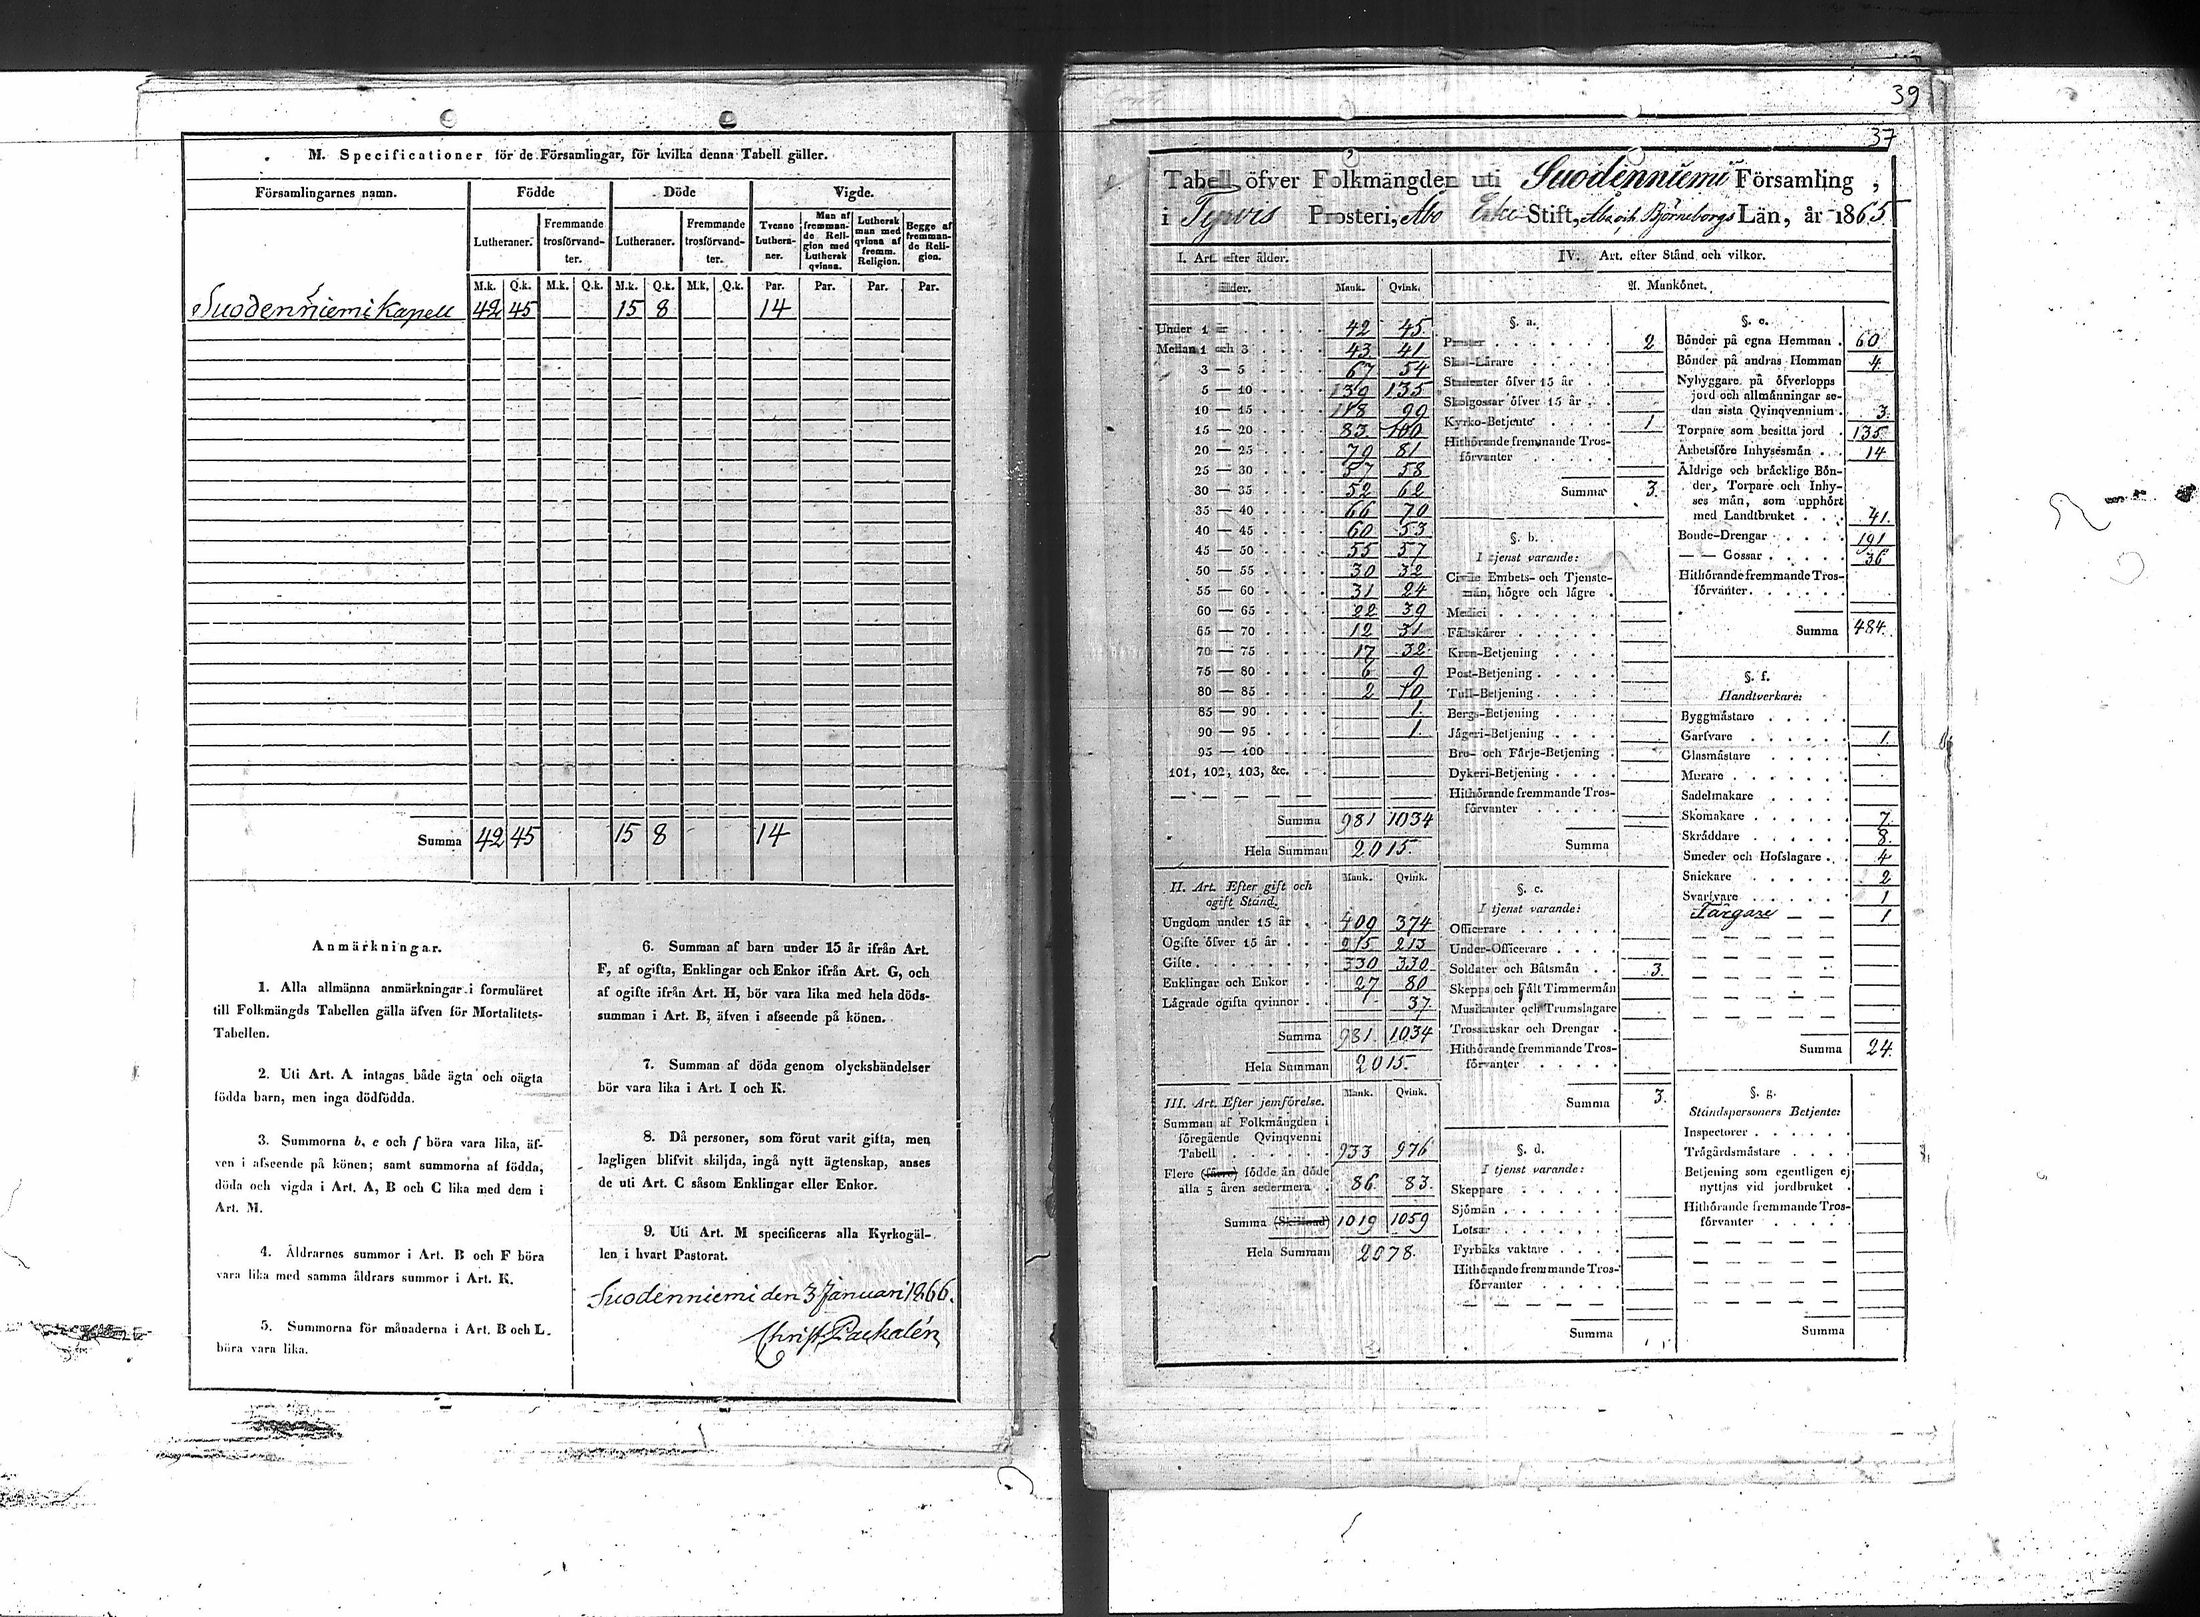 M. Specificationer för de Församlingar, för hvilka denna Tabell gäller.
Församlingarnes namn. Födde Döde Vigde.
Lutheraner. Fremmande trosförvandter. Lutheraner. Fremmande trosförvandter. Tvenne Lutheraner. Man af fremmande Religion med Luthersk qvinna. Luthersk man med qvinna af fremm. Religion. Begge af fremmande Religion.
M.k. Q.k. M.k. Q.k. M.k. Q.k. M.k. Q.k. Par. Par. Par. Par.
Suodenniemi Kapell 42 45 15 8 14
Summa 42 45 15 8 14
Anmärkningar.
1. Alla allmänna anmärkningar i formuläret
till Folkmängds Tabellen gälla äfven för Mortalitets-
Tabellen.
2. Uti Art. A intagas både ägta och oägta
födda barn, men inga dödfödda.
3. Summorna b, e och f böra vara lika, äf-
ven i afseende på könen; samt summorna af födda,
döda och vigda i Art. A, B och C lika med dem i
Art. M.
4. Åldrarnes summor i Art. B och F böra
vara lika med samma åldrars summor i Art. K.
5. Summorna för månaderna i Art. B och L.
böra vara lika.
6. Summan af barn under 15 år ifrån Art.
F, af ogifta, Enklingar och Enkor ifrån Art. G, och
af ogifte ifrån Art. H, bör vara lika med hela döds-
summan i Art. B, äfven i afseende på könen.
7. Summan af döda genom olyckshändelser
bör vara lika i Art. I och K.
8. Då personer, som förut varit gifta, men
lagligen blifvit skiljda, ingå nytt ägtenskap, anses
de uti Art. C såsom Enklingar eller Enkor.
9. Uti Art. M specificeras alla Kyrkogäl-
len i hvart Pastorat.
Suodenniemi den 3 Januari 1866.
Christ. Packalén
39
37
Tabell öfver Folkmängden uti Suodenniemi Församling,
i Tyrvis Prosteri, Åbo Erke Stift, Åbo och Björneborgs Län, år 1865.
I. Art. efter ålder.
Ålder. Mank. Qvink.
Under 1 år 42 45
Mellan 1 och 3 43 41
3 — 5 67 54
5 — 10 139 135
10 — 15 118 99
15 — 20 83 100
20 — 25 79 81
25 — 30 57 58
30 — 35 52 62
35 — 40 66 70
40 — 45 60 53
45 — 50 55 57
50 — 55 30 32
55 — 60 31 24
60 — 65 22 39
65 — 70 12 31
70 — 75 17 32
75 — 80 6 9
80 — 85 2 10
85 — 90 1.
90 — 95 1.
95 — 100
101, 102, 103, &c.
Summa 981 1034
Hela Summan 2015.
II. Art. Efter gift och
ogift Stånd. Mank. Qvink.
Ungdom under 15 år 409 374
Ogifte öfver 15 år 215 213
Gifte 330 330
Enklingar och Enkor 27 80
Lägrade ogifta qvinnor 37
Summa 981. 1034
Hela Summan 2015.
III. Art. Efter jemförelse. Mank. Qvink.
Summan af Folkmängden i
föregående Qvinqvenni
Tabell 933 976
Flere (färre) födde än döde
alla 5 åren sedermera 86 83.
Summa (Skillnad) 1019 1059
Hela Summan 2078.
IV. Art. efter Stånd och vilkor.
A. Mankönet.
§. a.
Prester 2
Skol-Lärare
Studenter öfver 15 år
Skolgossar öfver 15 år
Kyrko-Betjente 1
Hithörande fremmande Tros-
förvanter
Summa 3.
§. b.
I tjenst varande:
Civile Embets- och Tjenste-
män, högre och lägre
Medici
Fältskärer
Kron-Betjening
Post-Betjening
Tull-Betjening
Bergs-Betjening
Jägeri-Betjening
Bro- och Färje-Betjening
Dykeri-Betjening
Hithörande fremmande Tros-
förvanter
Summa
§. c.
I tjenst varande:
Officerare
Under-Officerare
Soldater och Båtsmän 3.
Skepps och Fält Timmermän
Musikanter och Trumslagare
Trosskuskar och Drengar
Hithörande fremmande Tros-
förvanter
Summa 3.
§. d.
I tjenst varande:
Skeppare
Sjömän
Lotsar
Fyrbåks vaktare
Hithörande fremmande Tros-
förvanter
Summa
§. e.
Bönder på egna Hemman 60
Bönder på andras Hemman 4
Nybyggare på öfverlopps
jord och allmänningar se-
dan sista Qvinqvennium 3.
Torpare som besitta jord 135
Arbetsföre Inhysesmän 14
Äldrige och bräcklige Bön-
der, Torpare och Inhy-
ses män, som upphört
med Landtbruket 41.
Bonde-Drengar 191
— — Gossar 36
Hithörande fremmande Tros-
förvanter
Summa 484.
§. f.
Handtverkare:
Byggmästare
Garfvare 1.
Glasmästare
Murare
Sadelmakare
Skomakare 7
Skräddare 8.
Smeder och Hofslagare 4
Snickare 2
Svarfvare 1
Färgare 1
Summa 24.
§. g.
Ståndspersoners Betjente:
Inspectorer
Trägårdsmästare
Betjening som egentligen ej
nyttjas vid jordbruket
Hithörande fremmande Tros-
förvanter
Summa